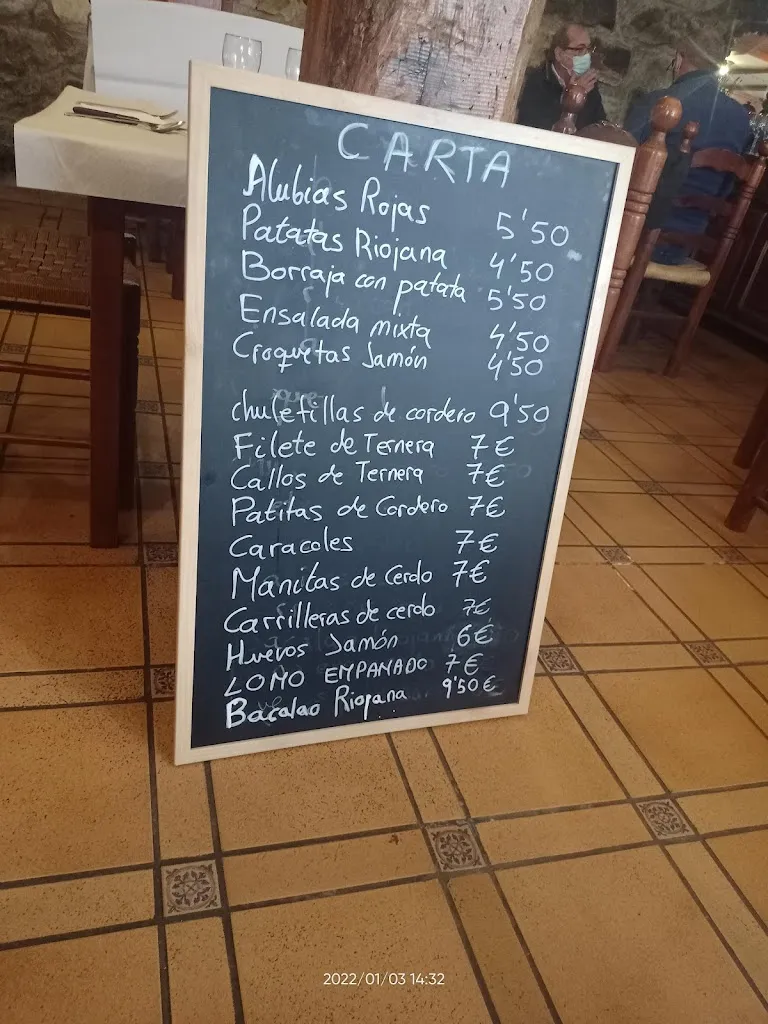 CARTA
Alubias Rojas 5'50
Patatas Riojana 4'50
Borraja con patata 5'50
Ensalada mixta 4'50
Croquetas Jamón 4'50
chuletillas de cordero 9'50
Filete de Ternera 7€
Callos de Ternera 7€
Patitas de Cordero 7€
Caracoles 7€
Manitas de Cerdo 7€
Carrilleras de cerdo 7€
Huevos Jamón 6€
LOMO EMPANADO 7€
Bacalao Riojana 9'50€
2022/01/03 14:32